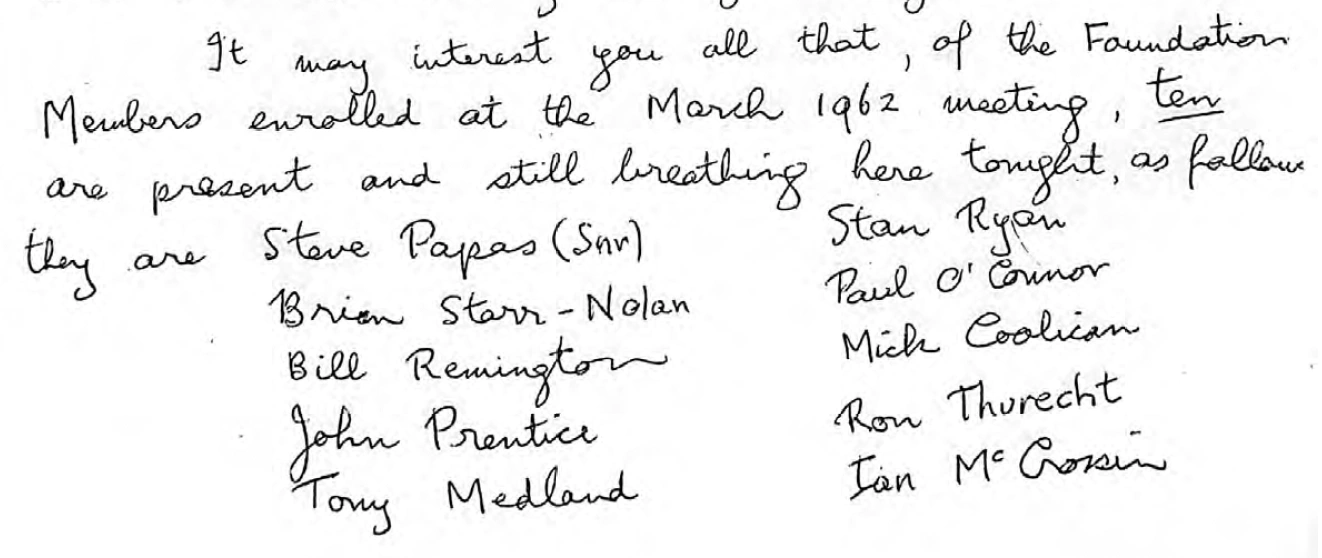 It may interest you all that, of the Foundation
Members enrolled at the March 1962 meeting, ten
are present and still breathing here tonight, as follows
they are Steve Papas (Snr)
Brian Starr-Nolan
Bill Remington
John Prentice
Tony Medland
Stan Ryan
Paul O'Connor
Mick Coolican
Ron Thurecht
Ian Mc Crossin